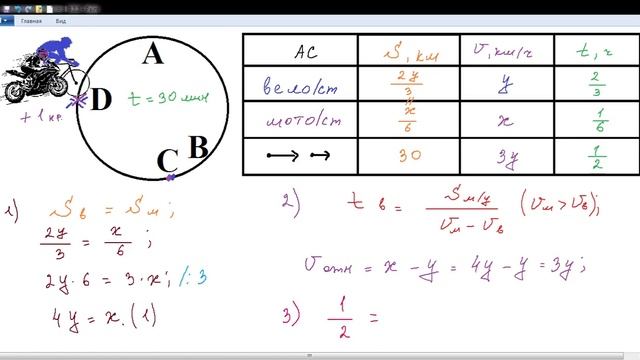 Главная Вид
A
D
B
C
t = 30 мин
+ 1 кр
AC S, км V, км/ч t, ч
вело/ст 2y/3 y 2/3
мото/ст x/6 x 1/6
30 3y 1/2
1) Sв = Sм ;
2y/3 = x/6 ;
2y · 6 = 3 · x; /: 3
4y = x. (1)
2) tв = Sм/у / Vм - Vв (Vм > Vв);
Vотн = x - y = 4y - y = 3y;
3) 1/2 =